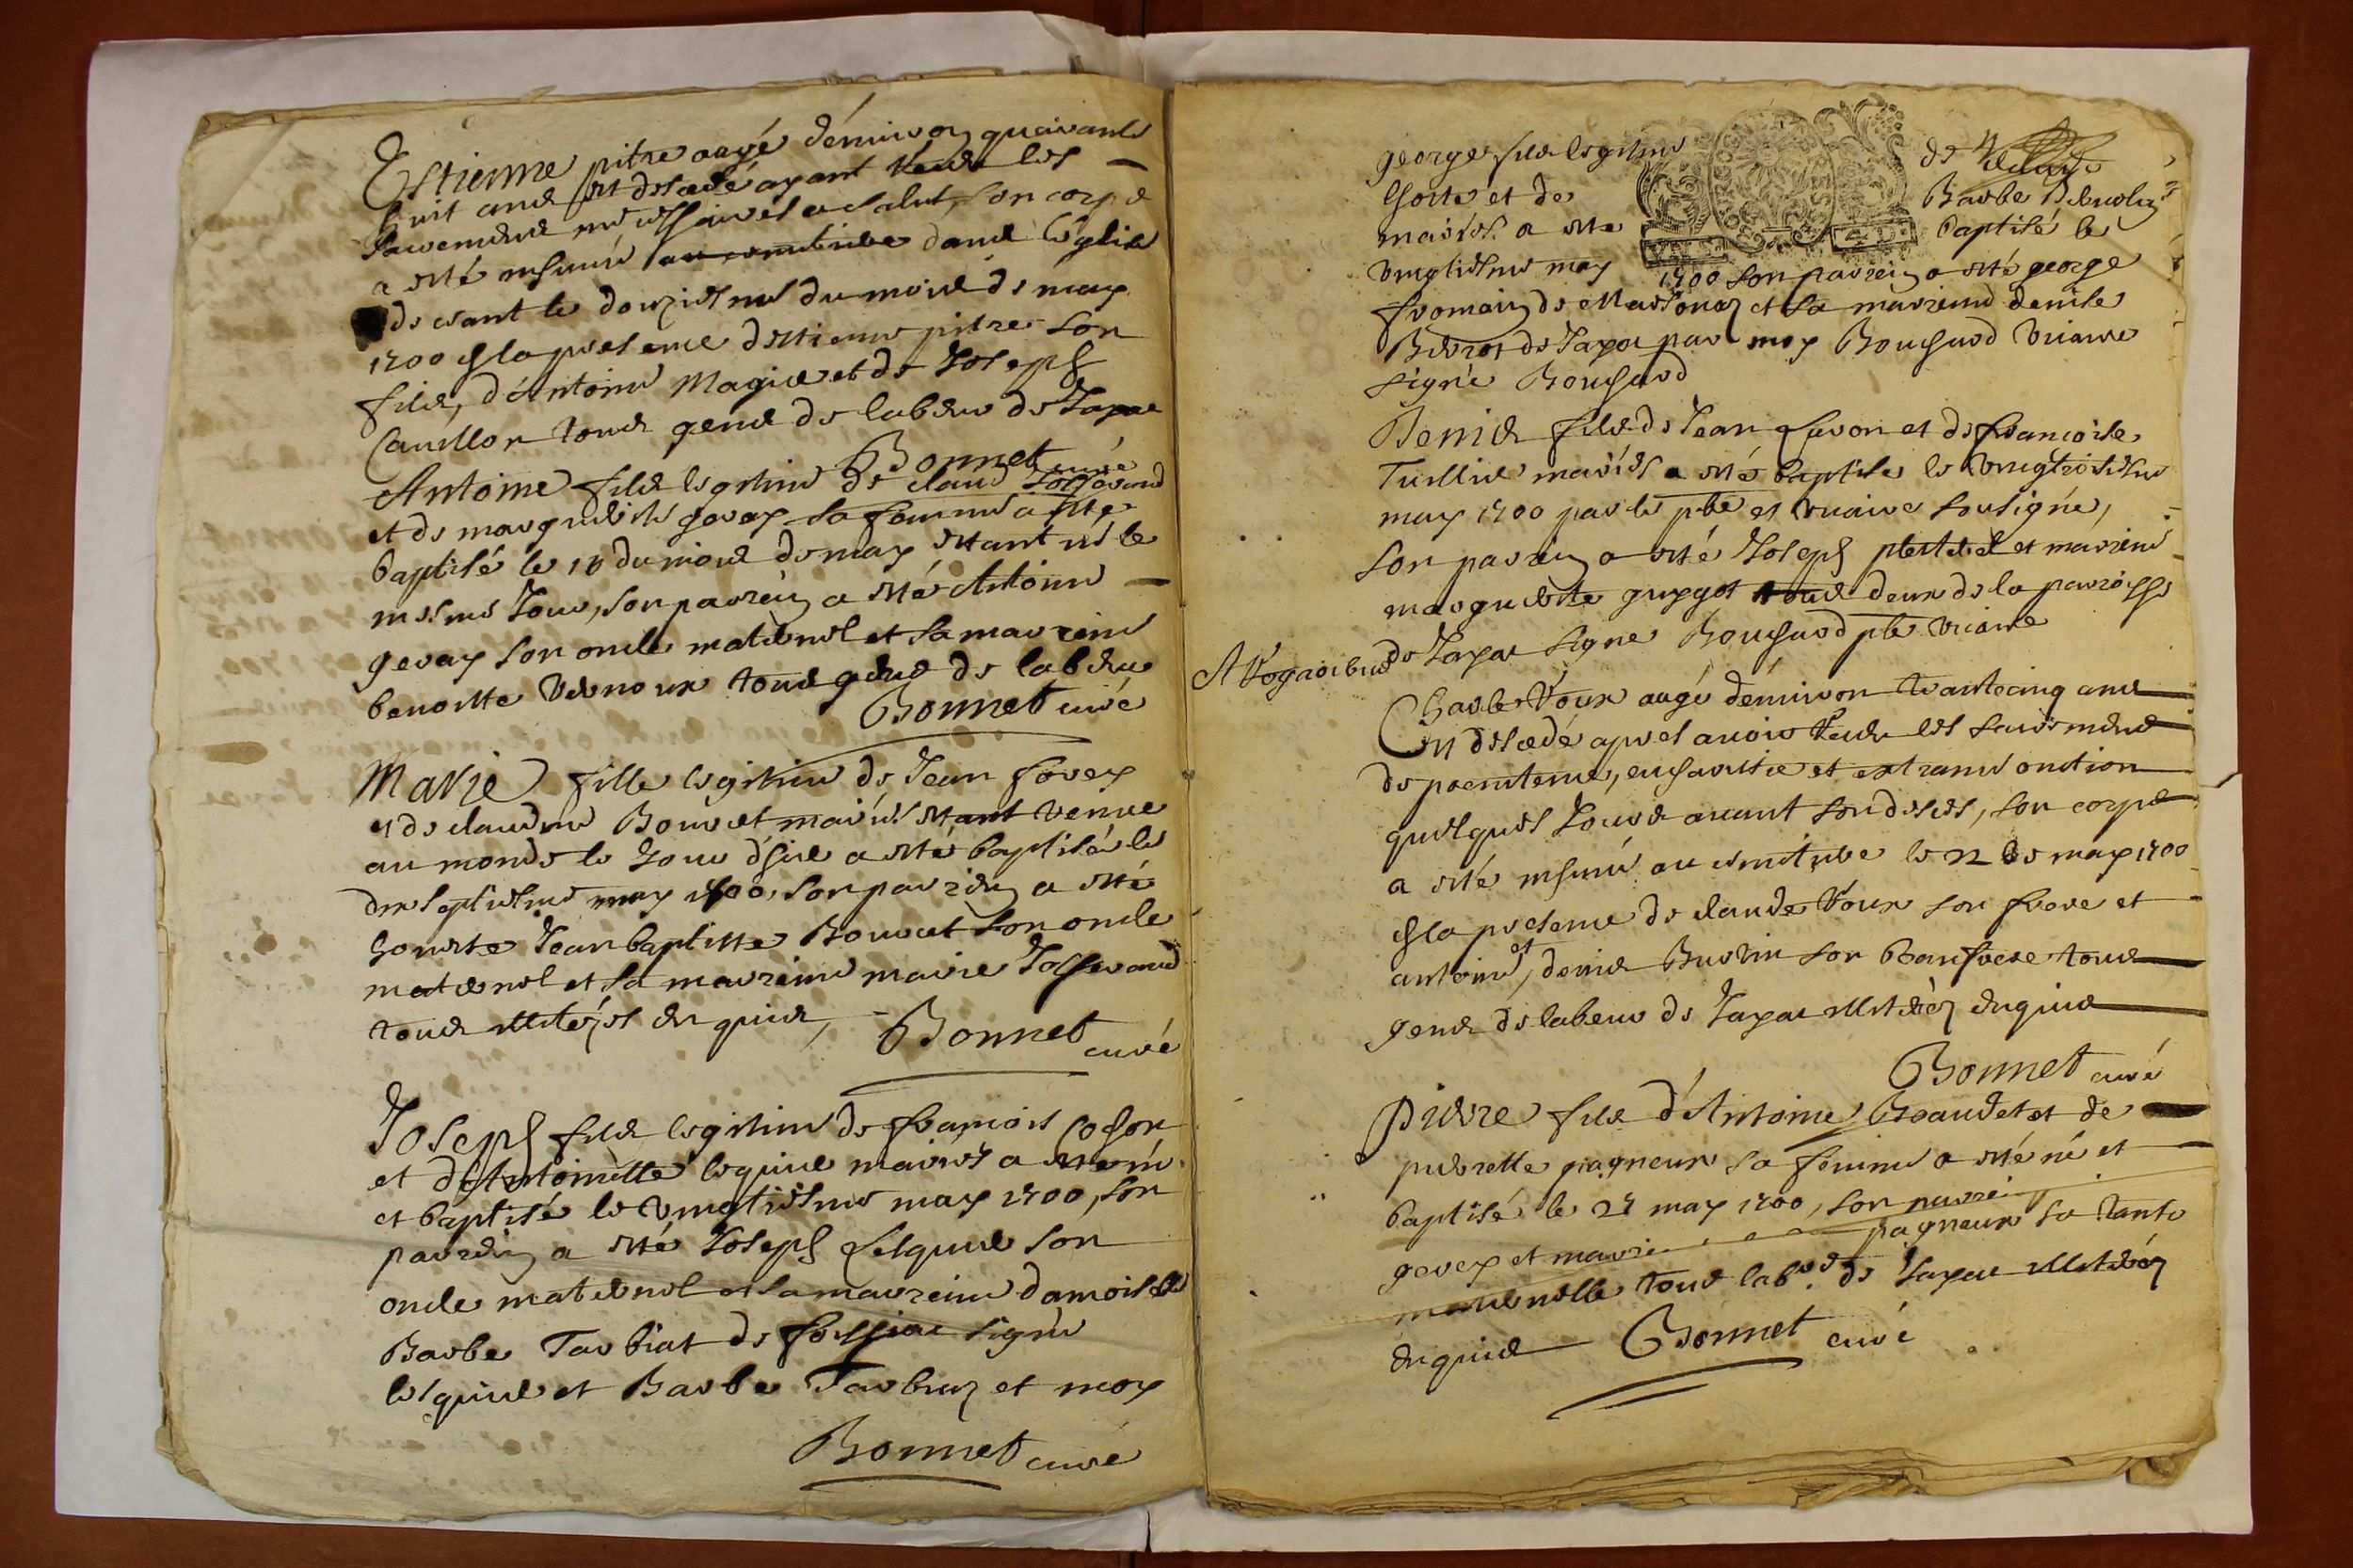 Estienne pitre aagé d'environ quarante
huit ans est decedé ayant receu les
sacremens necessaires a salut, son corps
a esté inhumé au cemetiere dans l'eglise
de ceant le douziesme du mois de may
1700 en la presence d'estienne pitre son
fils, d'Antoine Magis et de Joseph
Cavillon tous gens de labeur de Jayac
Bonnet curé
Antoine fils legitime de claud
et de marguerite gerey sa femme a esté
baptisé le 16 du mois de may estant né le
mesme Jour, son parrein a esté Antoine
gerey son oncle maternel et sa marreine
benoitte Vernoux tous gens de labeur
Bonnet curé
Marie fille legitime de Jean forey
et de claudine Bouvet mariés estant venue
au monde le Jour d'hier a esté baptisée le
dix septiesme may 1700, son parrein a esté
honeste Jean baptiste Bouvet son oncle
maternel et sa marreine marie Josserand
tous illiterés enquis,
Bonnet curé
Joseph fils legitime de francois Cochon
et d'Antoinette lequin mariés a esté né
et baptisé le vingtiesme may 1700, son
parrein a esté Joseph lesquin son
oncle maternel et sa marreine damoiselle
Barbe Tarbiat de foissiac signés
lesquin et Barbe et moy
Bonnet curé
george fils legitime de
et de Barbe
mariés a esté baptisé le
vingtiesme may 1700 son parrein a esté george
fromain de et sa marreine denise
de Jayac par moy Bouchard vicaire
signé Bouchard
Denis fils de Jean et de francoise
mariés a esté baptisé le vingtroisiesme
may 1700 par le pbre et vicaire sousigné,
son parrein a esté Joseph et marreine
marguerite guygot tous deux de la parroisse
de Jayac signe Bouchard pbre vicaire
Charle Voux aagé d'environ trantecinq ans
est decedé apres avoir receu les sacremens
de poenitence, eucharistie et extreme onction
quelques Jours avant son deces, son corps
a esté inhumé au cemetiere le 22 de may 1700
en la presence de claude Voux son frere et
antoine, et denis Burtin son beaufrere tous
gens de labeur de Jayac illiterés enquis
Bonnet curé
Pierre fils d'Antoine et de
pierrette pagneux sa femme a esté né et
baptisé le 27 may 1700, son parrein
gerey et marreine pagneux sa tante
maternelle tous labrs. de Jayac illiterés
enquis Bonnet curé